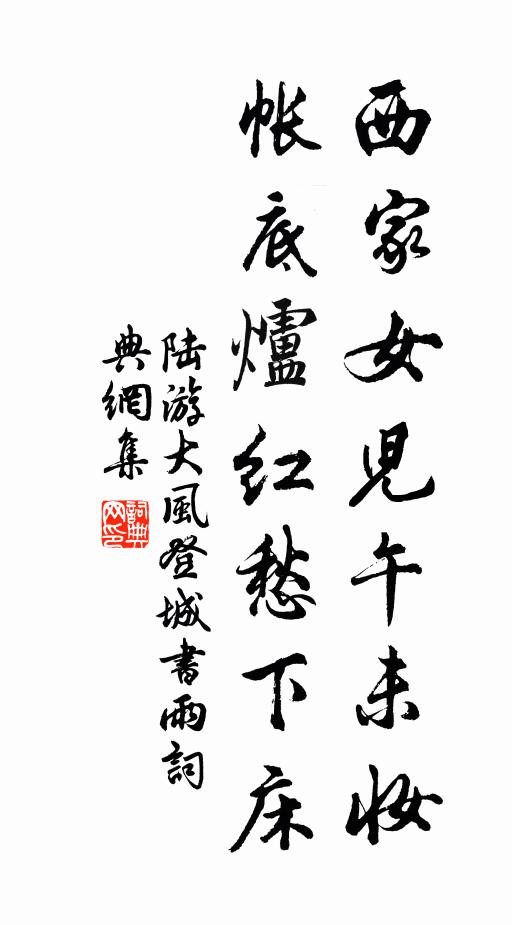 西家女児午未妝
帳底爐紅愁下床
陆游大風登城書雨詞
典網集
詞典网印